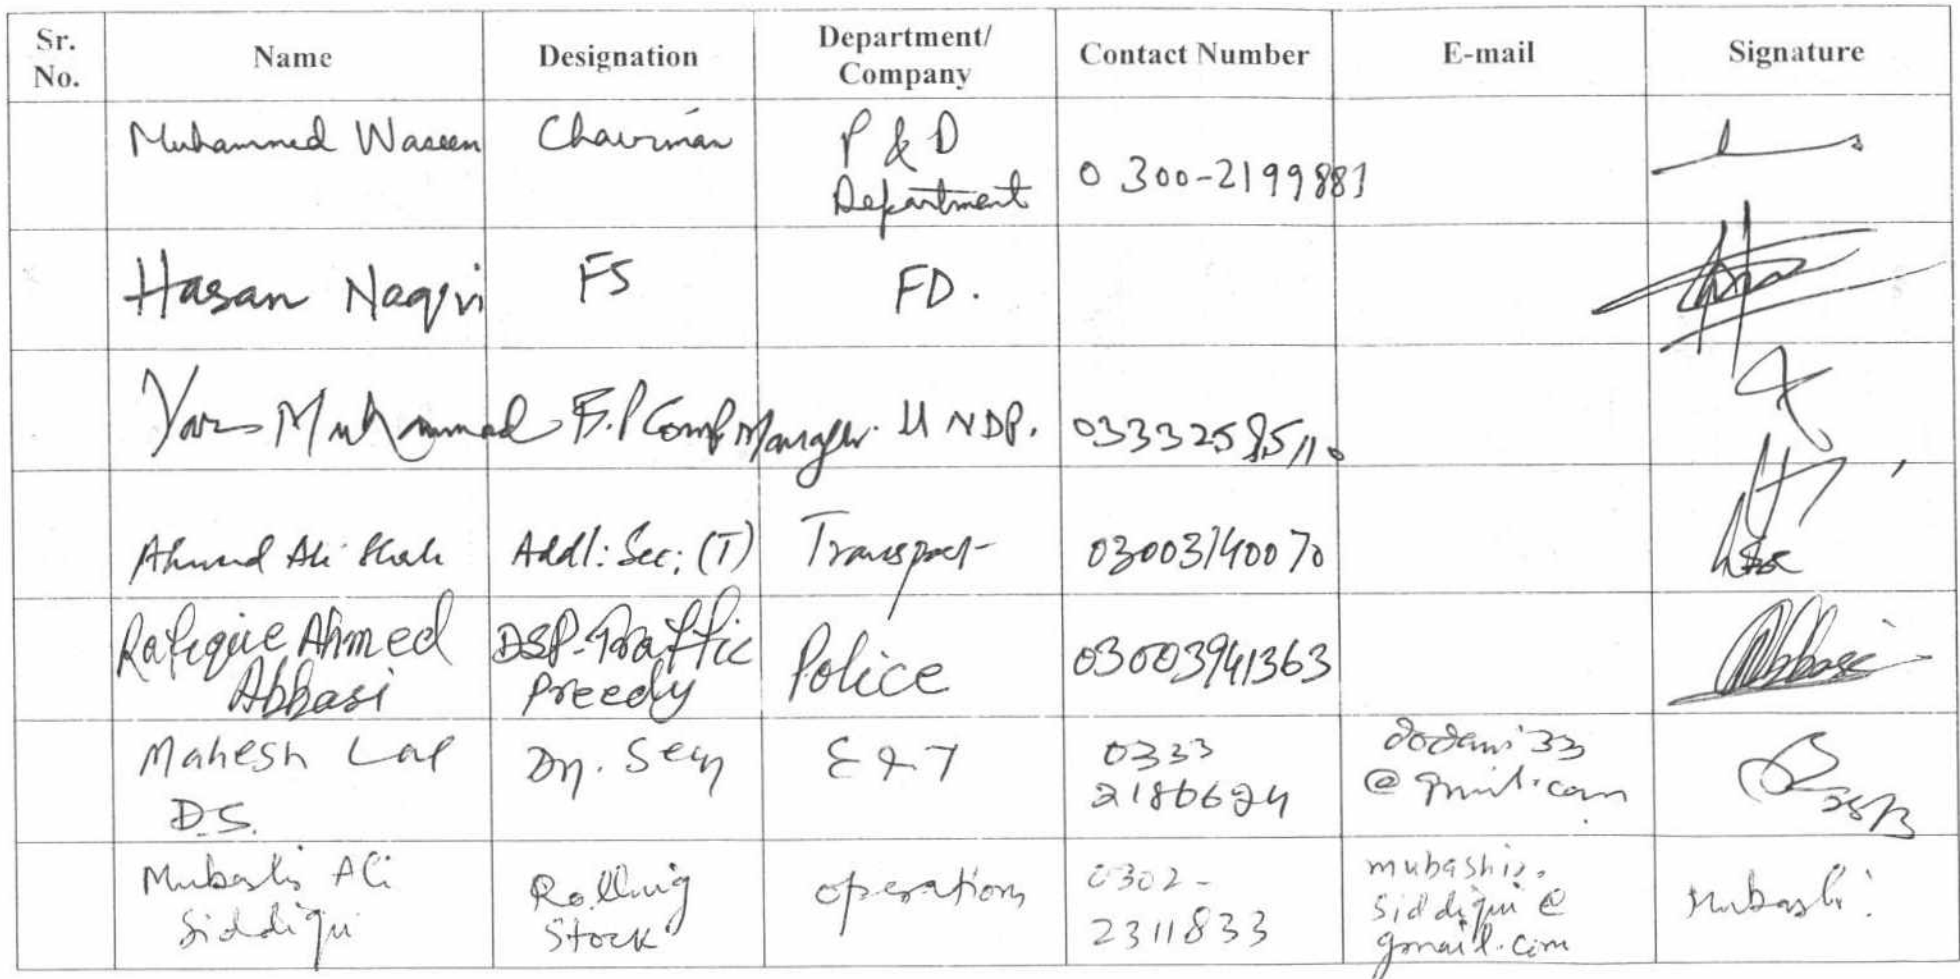 Sr. No. Name Designation Department/ Company Contact Number E-mail Signature
Muhammed Waseem Chairman P & D Department 0 300-2199881
Hasan Naqvi FS FD.
Muhammad Manager. UNDP. 0333258511
Ahmed Ali Shah Addl: Sec; (T) Transport 03003140070
Rafique Ahmed Abbasi DSP-Traffic Preedy Police 03003941363 Abbasi
Mahesh Lal D.S. Dy. Secy E & T 0333 2186624 dodani33 @gmail.com
Mubashir Ali Siddiqui Rolling Stock operations 0302-2311833 mubashir.siddiqui@gmail.com Mubashir